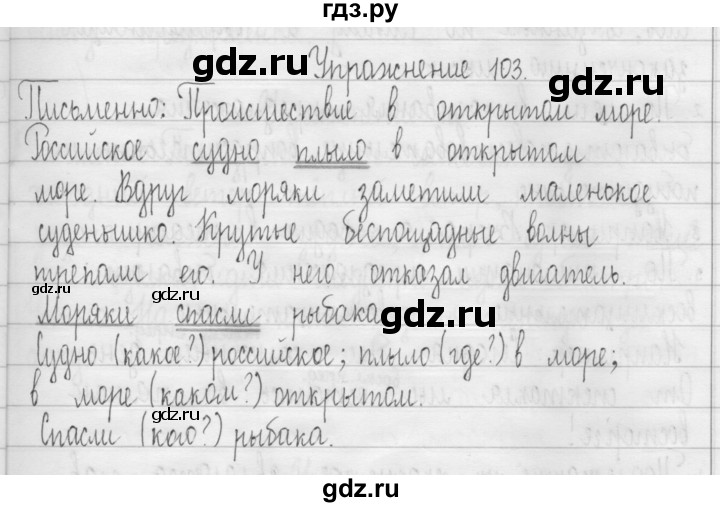 гдз.ру
gdz.ru gdz.ru
Упражнение 103.
Письменно: Происшествие в открытом море.
Российское судно плыло в открытом
море. Вдруг моряки заметили маленькое
суденышко. Крутые беспощадные волны
трепали его. У него отказал двигатель.
gdz.ru gdz.ru
gdz.ru
Моряки спасли рыбака.
Судно (какое?) российское; плыло (где?) в море;
в море (каком?) открытом.
Спасли (кого?) рыбака.
gdz.ru gdz.ru
gdz.ru